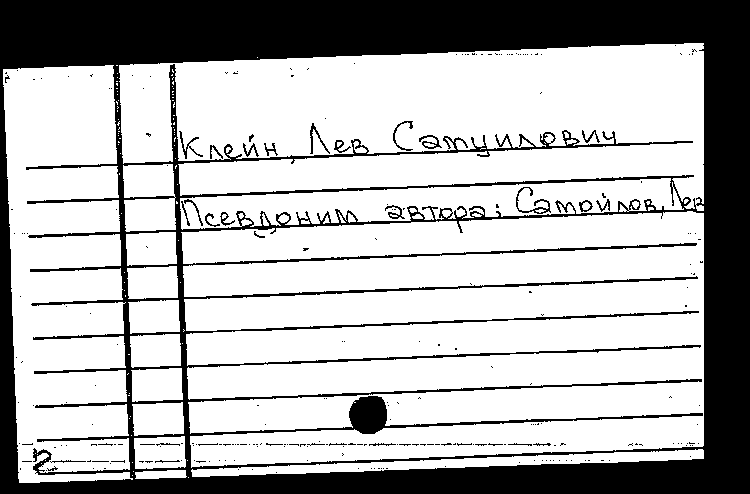 Клейн, Лев Самуилович
Псевдоним автора: Самойлов, Лев
2